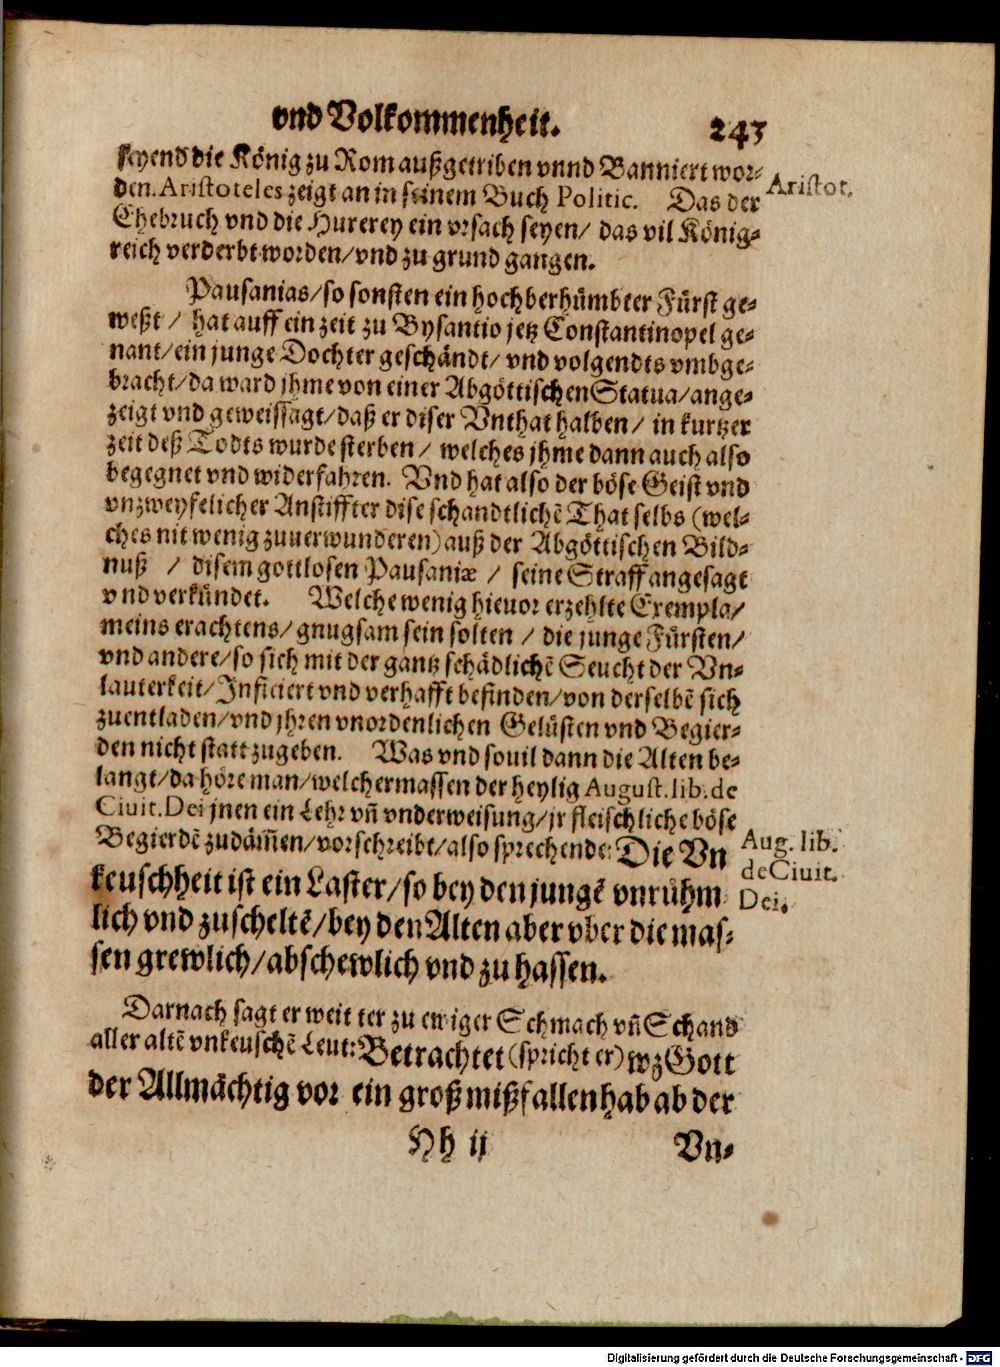 vnd Volkommenheit. 243
seyend die König zu Rom außgetriben vnnd Banniert wor-
den. Aristoteles zeigt an in seinem Buch Politic. Das der
Aristot.
Ehebruch vnd die Hurerey ein vrsach seyen/ das vil König-
reich verderbt worden/ vnd zu grund gangen.
Pausanias/ so sonsten ein hochberhümbter Fürst ge-
weßt / hat auff ein zeit zu Bysantio jetz Constantinopel ge-
nant/ ein junge Dochter geschändt/ vnd volgendts vmbge-
bracht/ da ward jhme von einer Abgöttischen Statua/ ange-
zeigt vnd geweissagt/ daß er diser Vnthat halben/ in kurtzer
zeit deß Todts wurde sterben / welches jhme dann auch also
begegnet vnd widerfahren. Vnd hat also der böse Geist vnd
vnzweyfelicher Anstiffter dise schandtlichẽ That selbs (wel-
ches nit wenig zuuerwunderen) auß der Abgöttischen Bild-
nuß / disem gottlosen Pausaniæ / seine Straff angesagt
vnd verkündet. Welche wenig hieuor erzehlte Exempla/
meins erachtens/ gnugsam sein solten / die junge Fürsten/
vnd andere/ so sich mit der gantz schädlichẽ Seucht der Vn-
lauterkeit/ Inficiert vnd verhafft befinden/ von derselbẽ sich
zuentladen/ vnd jhren vnordenlichen Gelüsten vnd Begier-
den nicht statt zugeben. Was vnd souil dann die Alten be-
langt/ da höre man/ welchermassen der heylig August. lib. de
Ciuit. Dei jnen ein Lehr vñ vnderweisung/ jr fleischliche böse
Begierdẽ zudäm̃en/ vorschreibt/ also sprechende: Die Vn
keuschheit ist ein Laster/ so bey den jungẽ vnrühm
lich vnd zuscheltẽ/ bey den Alten aber vber die mas-
sen grewlich/ abschewlich vnd zu hassen.
Aug. lib.
de Ciuit.
Dei.
Darnach sagt er weitter zu ewiger Schmach vñ Schand
aller altẽ vnkeuschẽ Leut: Betrachtet (spricht er) wz Gott
der Allmächtig vor ein groß mißfallen hab ab der
Hh ij Vn-
Digitalisierung gefördert durch die Deutsche Forschungsgemeinschaft - DFG